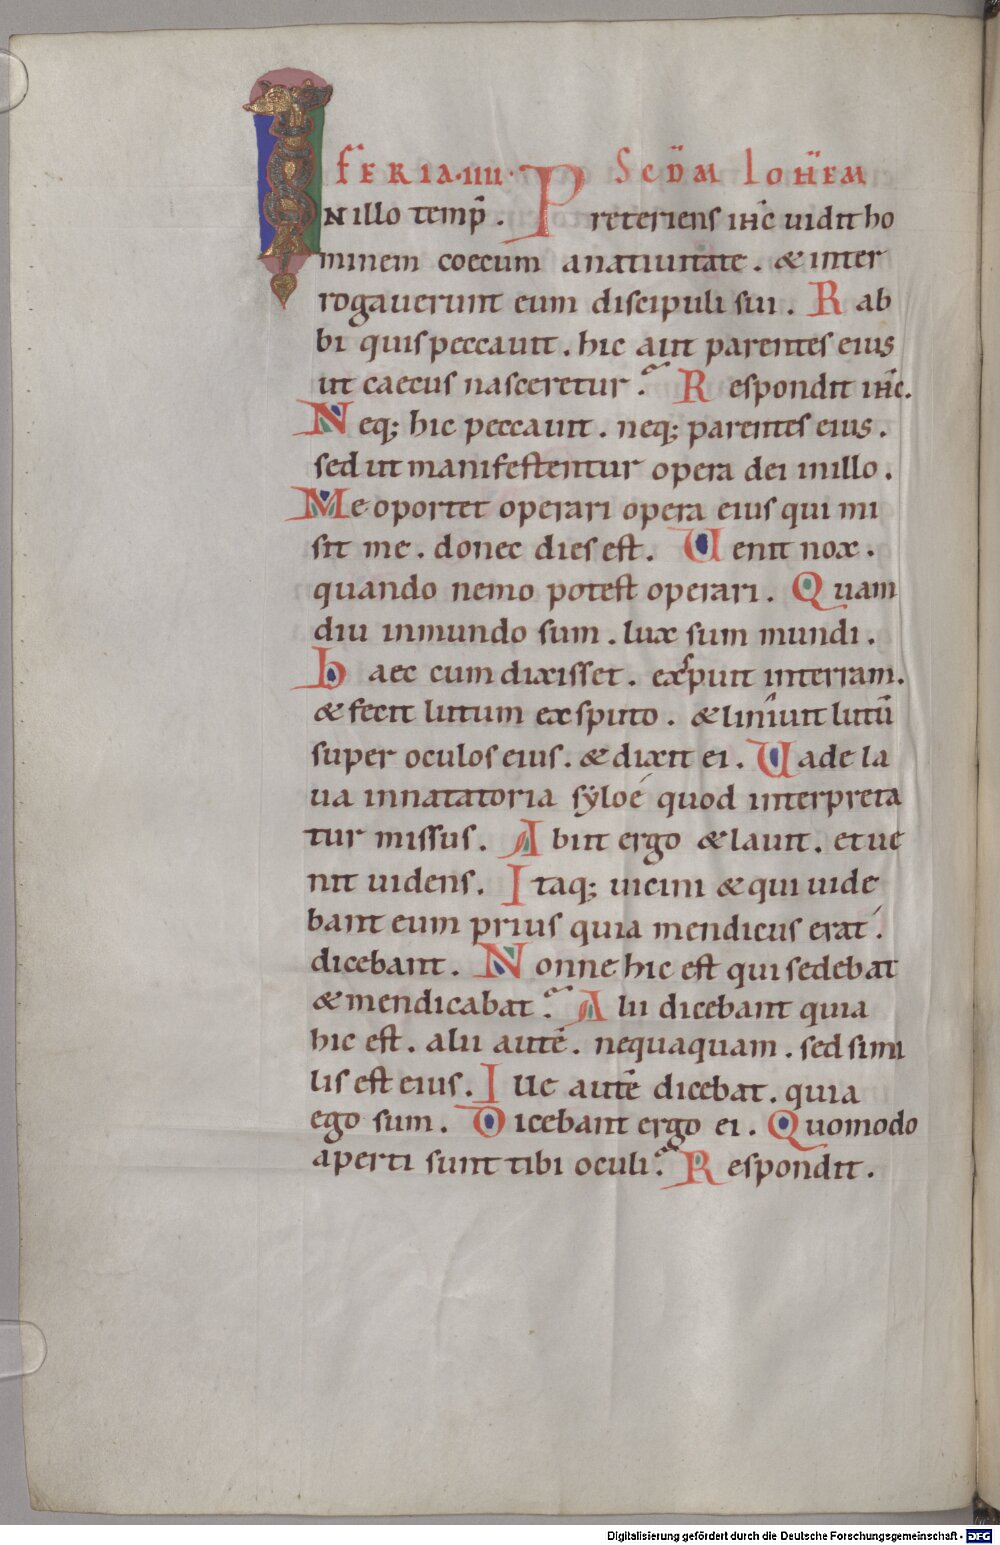 FERIA·IIII· SCD̄M IOH̄EM
IN illo temp̄. Preteriens ih̄c uidit ho
minem coecum anatiuitate. & inter
rogauerunt eum discipuli sui. Rab
bi quis peccauit. hic aut parentes eius
ut caecus nasceretur? Respondit ih̄c.
Neq; hic peccauit. neq; parentes eius.
sed ut manifestentur opera dei inillo.
Me oportet operari opera eius qui mi
sit me. donec dies est. Uenit nox.
quando nemo potest operari. Quam
diu inmundo sum. lux sum mundi.
haec cum dixisset. exspuit interram.
& fecit lutum ex sputo. & liniuit lutū
super oculos eius. & dixit ei. Uade la
ua innatatoria syloé quod interpreta
tur missus. Abiit ergo & lauit. et ue
nit uidens. Itaq; uicini & qui uide
bant eum prius quia mendicus erat.
dicebant. Nonne hic est qui sedebat
& mendicabat? Alii dicebant quia
hic est. alii autē. nequaquam. sed simi
lis est eius. Ille autē dicebat. quia
ego sum. Dicebant ergo ei. Quomodo
aperti sunt tibi oculi? Respondit.
Digitalisierung gefördert durch die Deutsche Forschungsgemeinschaft - DFG